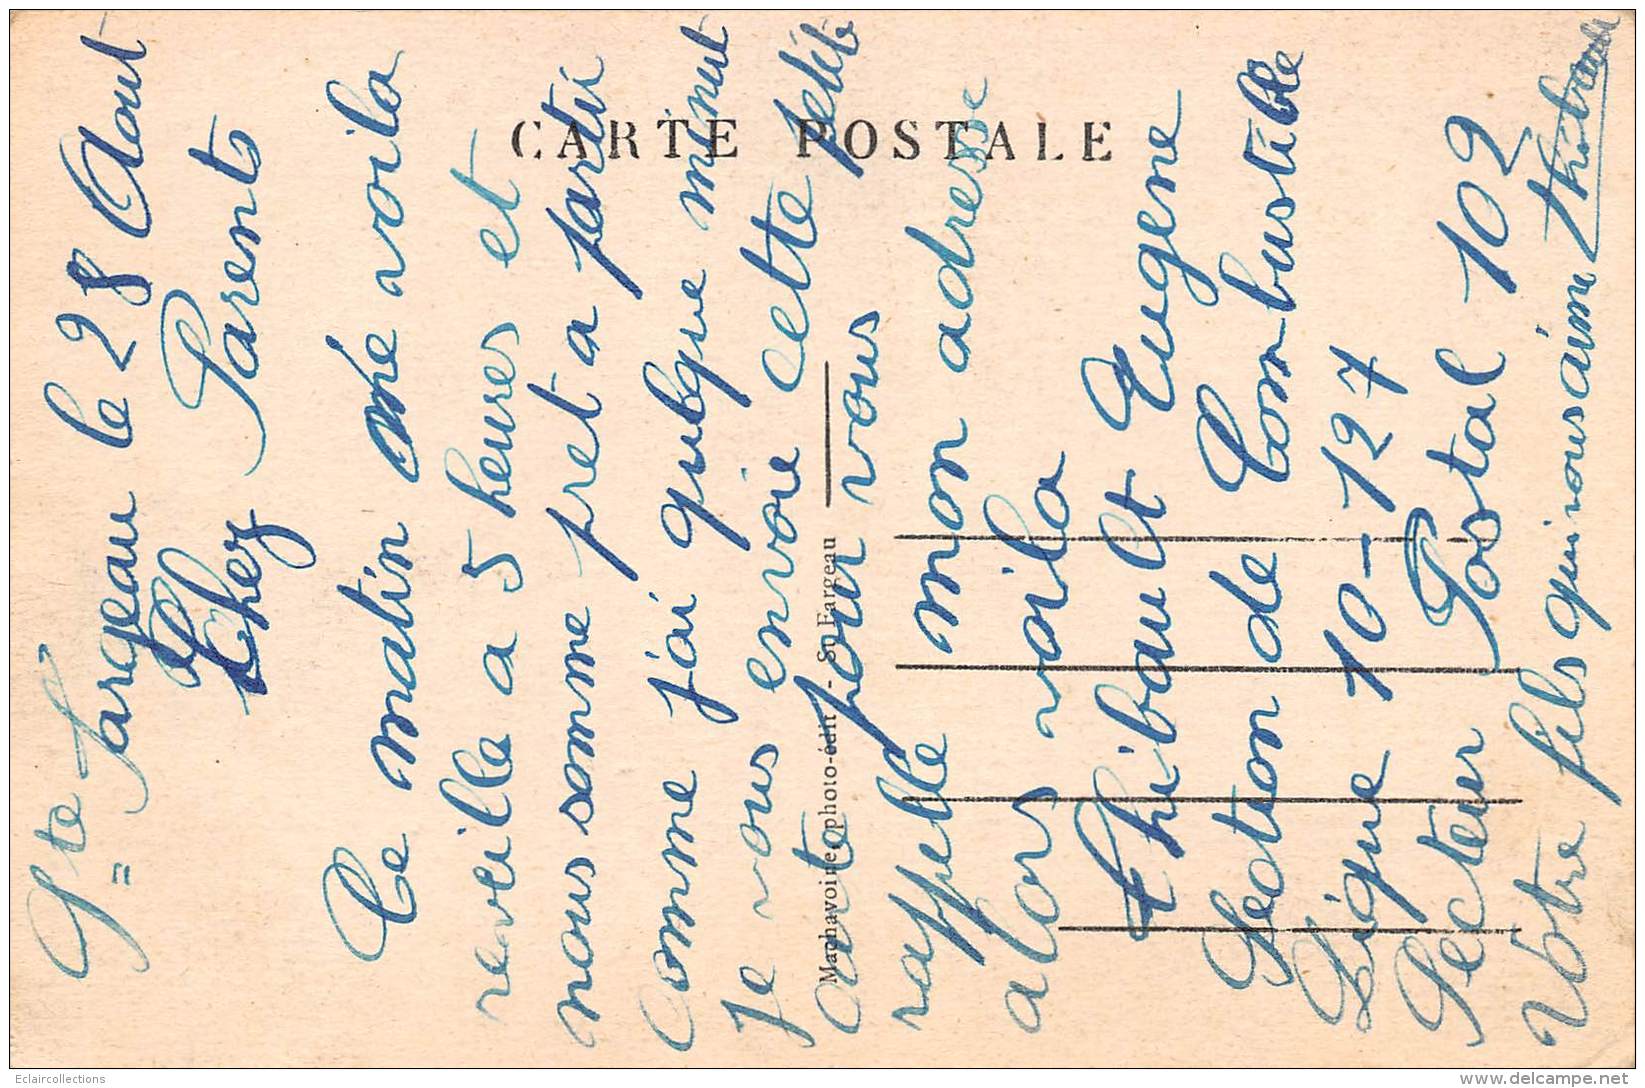 Ste Fargeau le 28 Aout
Chez Parents
Ce matin me voila
reveille a 5 heures et
nous somme pret a partir
Comme j'ai quelque minut
Je vous envoie cette petite
carte pour vous
rappelle mon adresse
alors voila
Thibault Eugene
Section de Combustible
Ligne 10-127
Secteur Postal 109
Votre fils qui vous aime
CARTE POSTALE
Machavoine, photo-édit - St-Fargeau
Eclaircollections
delcampe.net